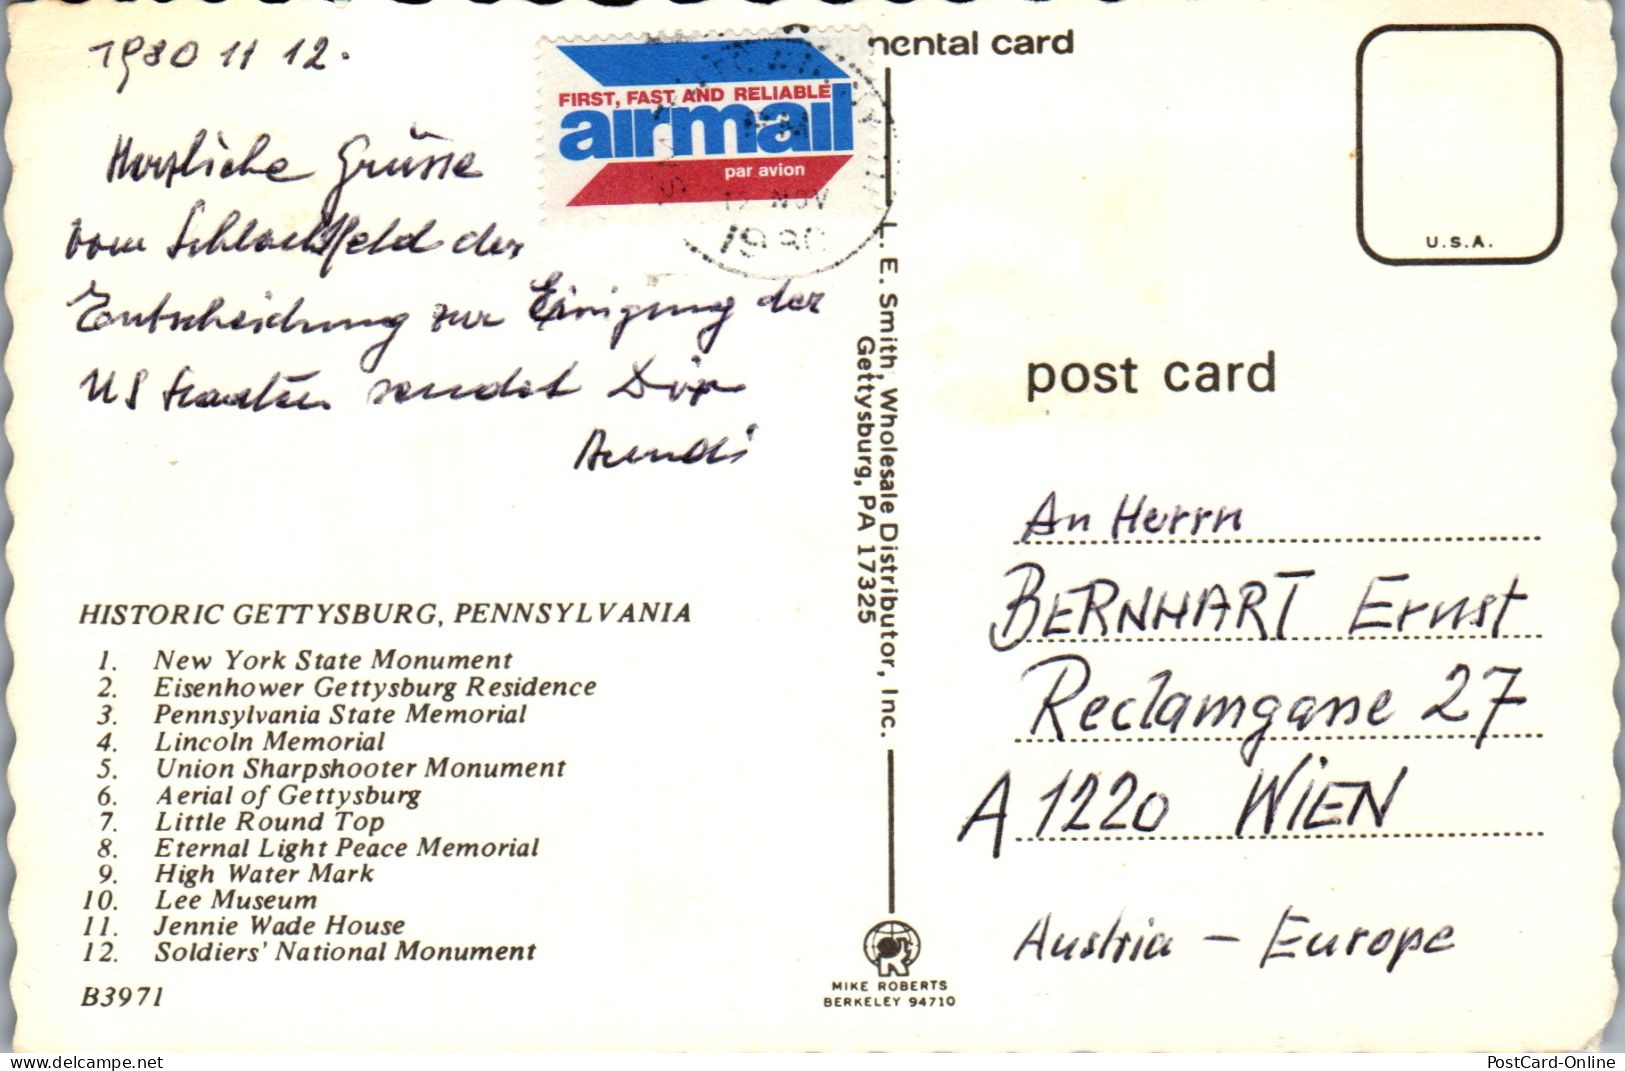 1980 11 12.
Herzliche Grüsse
vom Schlachtfeld der
Entscheidung zur Einigung der
US Staaten sendet Dir
nental card
FIRST, FAST AND RELIABLE
airmail
par avion
PM
12 NOV
1980
U.S.A.
L. E. Smith, Wholesale Distributor, Inc.
Gettysburg, PA 17325
post card
An Herrn
BERNHART Ernst
Reclamgasse 27
A 1220 WIEN
Austria - Europe
HISTORIC GETTYSBURG, PENNSYLVANIA
1. New York State Monument
2. Eisenhower Gettysburg Residence
3. Pennsylvania State Memorial
4. Lincoln Memorial
5. Union Sharpshooter Monument
6. Aerial of Gettysburg
7. Little Round Top
8. Eternal Light Peace Memorial
9. High Water Mark
10. Lee Museum
11. Jennie Wade House
12. Soldiers' National Monument
B3971
MIKE ROBERTS
BERKELEY 94710
www.delcampe.net
PostCard-Online